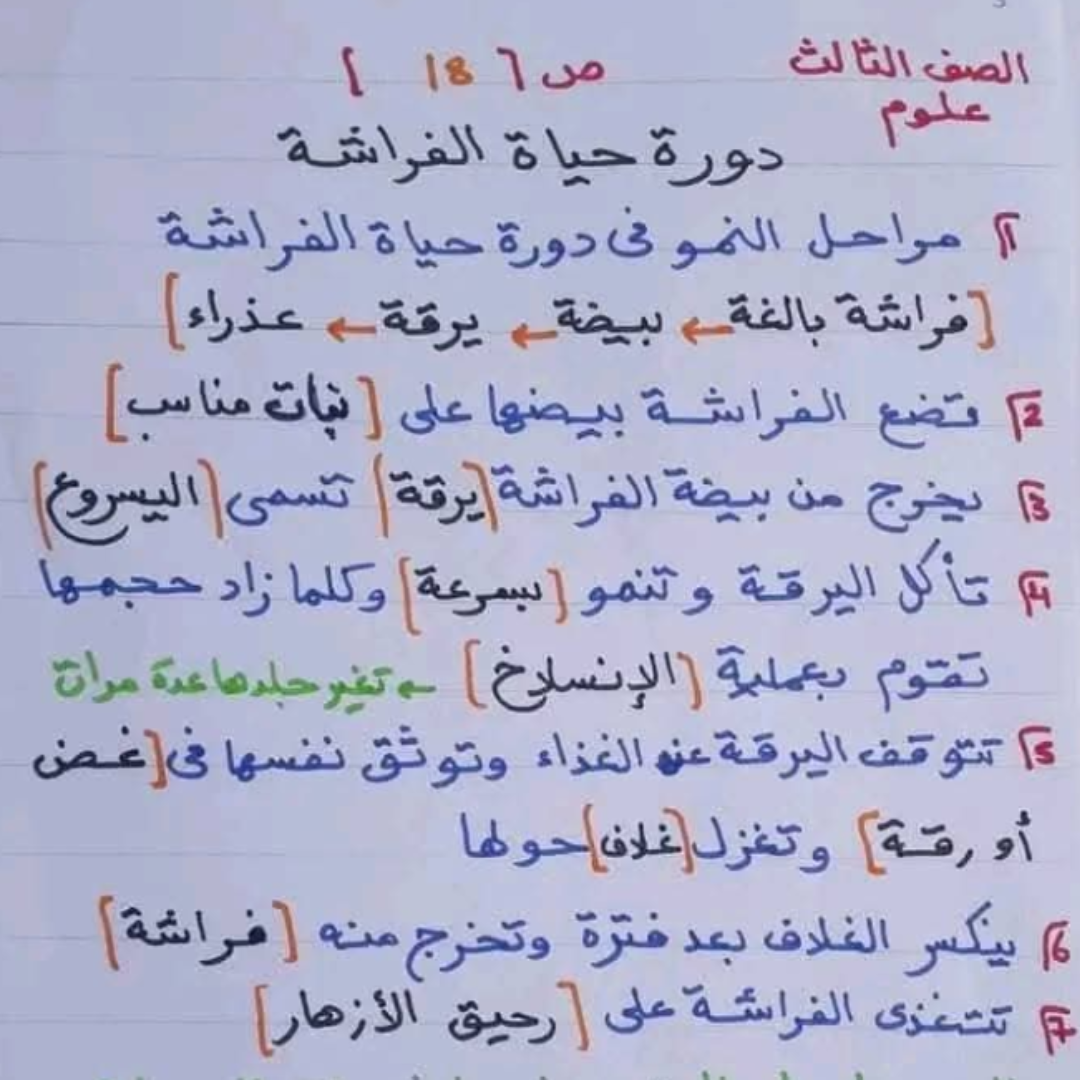 الصف الثالث ص [ 18 ]
علوم
دورة حياة الفراشة
1 مراحل النمو فى دورة حياة الفراشة
[فراشة بالغة ← بيضة ← يرقة ← عذراء]
2 تضع الفراشة بيضها على [نبات مناسب]
3 يخرج من بيضة الفراشة (يرقة) تسمى (اليسروع)
4 تأكل اليرقة وتنمو [بسرعة] وكلما زاد حجمها
تقوم بعملية [الإنسلاخ] ← تغير جلدها عدة مرات
5 تتوقف اليرقة عن الغذاء وتوثق نفسها فى [غض
أو رقة] وتغزل [غلاف] حولها
6 ينكسر الغلاف بعد فترة وتخرج منه [فراشة]
7 تتغذى الفراشة على [رحيق الأزهار]